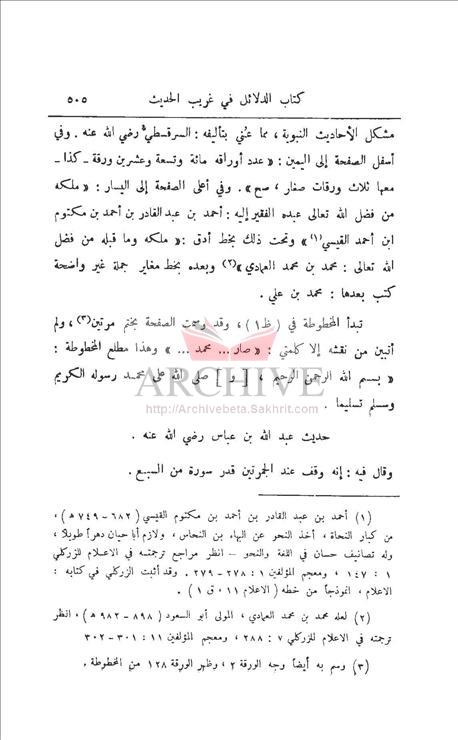 كتاب الدلائل في غريب الحديث ٥٠٥
مشكل الأحاديث النبوية، مما عُني بتأليفه : السرقسطي رضي الله عنه . وفي
أسفل الصفحة إلى اليمين : « عدد أوراقه مائة وتسعة وعشرين ورقة - كذا -
معها ثلاث ورقات صغار ، سح » . وفي أعلى الصفحة إلى اليسار : « ملكه
من فضل الله تعالى عبده الفقير إليه : أحمد بن عبد القادر بن أحمد بن مكتوم
ابن أحمد القيسي(١)» وتحت ذلك بخط أدق :« ملكه وما قبله من فضل
الله تعالى : محمد بن محمد العمادي»(٢) وبعده بخط مغاير جملة غير واضحة
كتب بعدها : محمد بن علي .
تبدأ المخطوطة في ( ظ ١ ) ، وقد وسمت الصفحة بختم مرتين(٣) ، ولم
أتبين من نقشه إلا كلمتي : « صار ... محمد ... » وهذا مطلع المخطوطة :
« بسم الله الرحمن الرحيم ، [ و ] صلى الله على محمد رسوله الكريم
وسلم تسليما .
ARCHIVE
http://Archivebeta.Sakhrit.com
حديث عبد الله بن عباس رضي الله عنه .
وقال فيه : إنه وقف عند الجمرتين قدر سورة من السبع .
(١) أحمد بن عبد القادر بن أحمد بن مكتوم القيسي ( ٦٨٢ - ٧٤٩ ه ) ،
من كبار النحاة ، أخذ النحو عن البهاء بن النحاس ، ولازم أبا حيان دهراً طويلا ،
وله تصانيف حسان في اللغة والنحو – انظر مراجع ترجمته في الاعلام للزركلي
١ : ١٤٧ ، ومعجم المؤلفين ١ : ٢٧٨ - ٢٧٩ . وقد أثبت الزركلي في كتابه :
الاعلام ، انموذجاً من خطه ( الاعلام ١١ ، ق ١ ) .
(٢) لعله محمد بن محمد العمادي ، المولى أبو السعود ( ٨٩٨ - ٩٨٢ ه ) ، انظر
ترجمته في الاعلام للزركلي ٧ : ٢٨٨ ، ومعجم المؤلفين ١١ : ٣٠١ - ٣٠٢
(٣) وسم به أيضاً وجه الورقة ٢ ، وظهر الورقة ١٢٨ من المخطوطة .